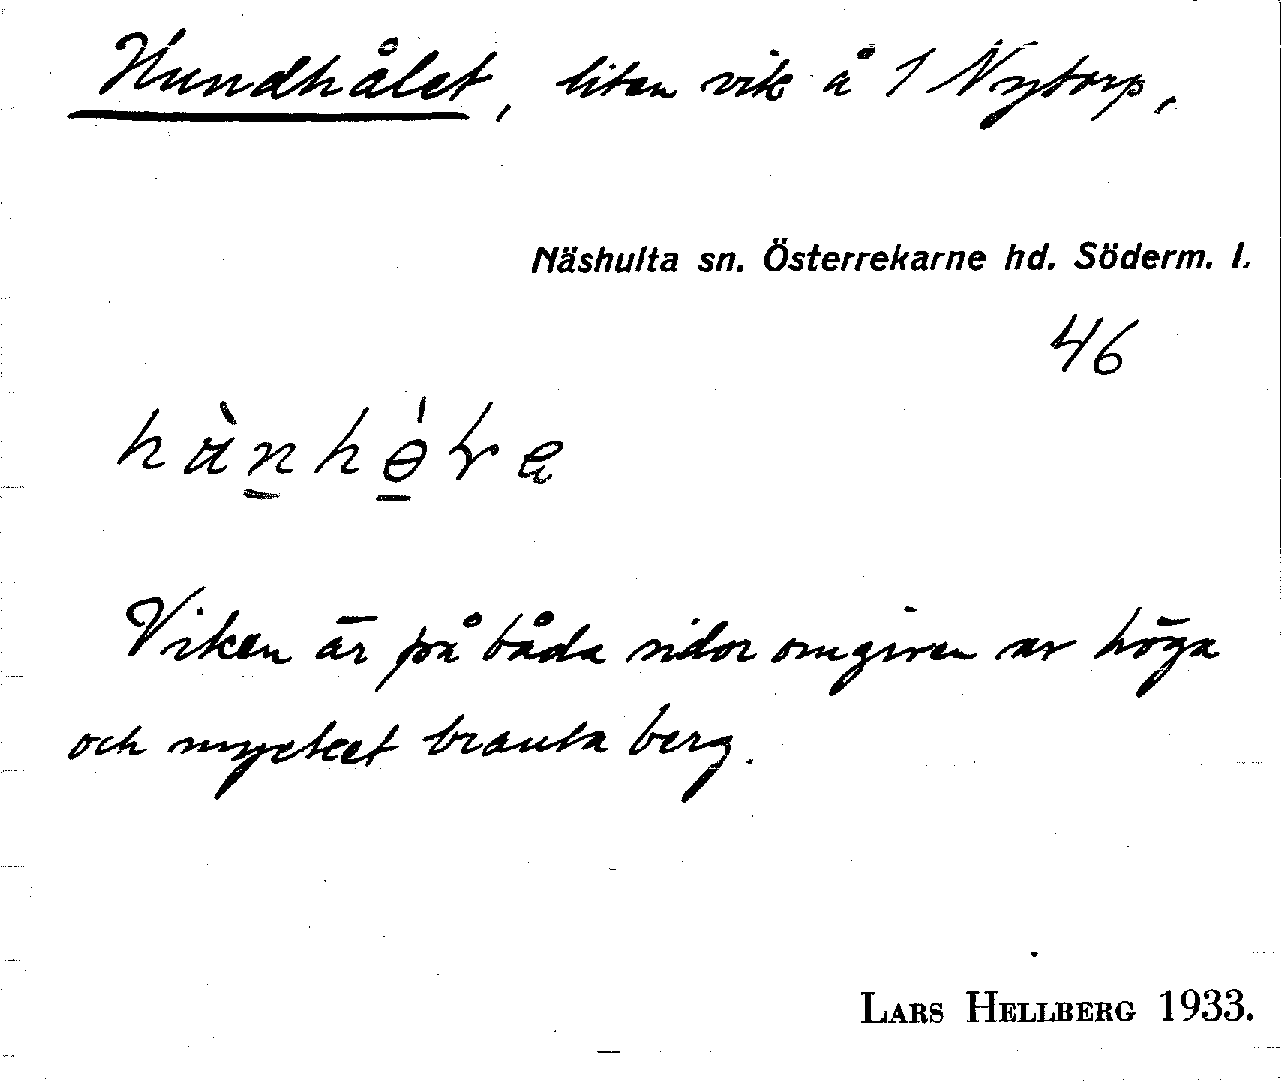 Hundhålet, liten vik å 1 Nytorp,
Näshulta sn. Österrekarne hd. Söderm. l.
46
Viken är på båda sidor omgiven av höga
och mycket branta berg.
LARS HELLBERG 1933.